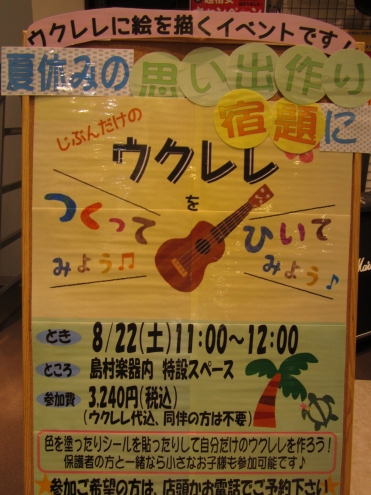 ウクレレに絵を描くイベントです!
夏休みの思い出作り
宿題に
じぶんだけの
ウクレレ
を
つくって
みよう♫
ひいて
みよう♪
とき 8/22(土)11:00～12:00
ところ 島村楽器内 特設スペース
参加費 3.240円(税込)
(ウクレレ代込、同伴の方は不要)
色を塗ったりシールを貼ったりして自分だけのウクレレを作ろう!
保護者の方と一緒なら小さなお子様も参加可能です♪
★参加ご希望の方は、店頭かお電話でご予約下さい
Marshall